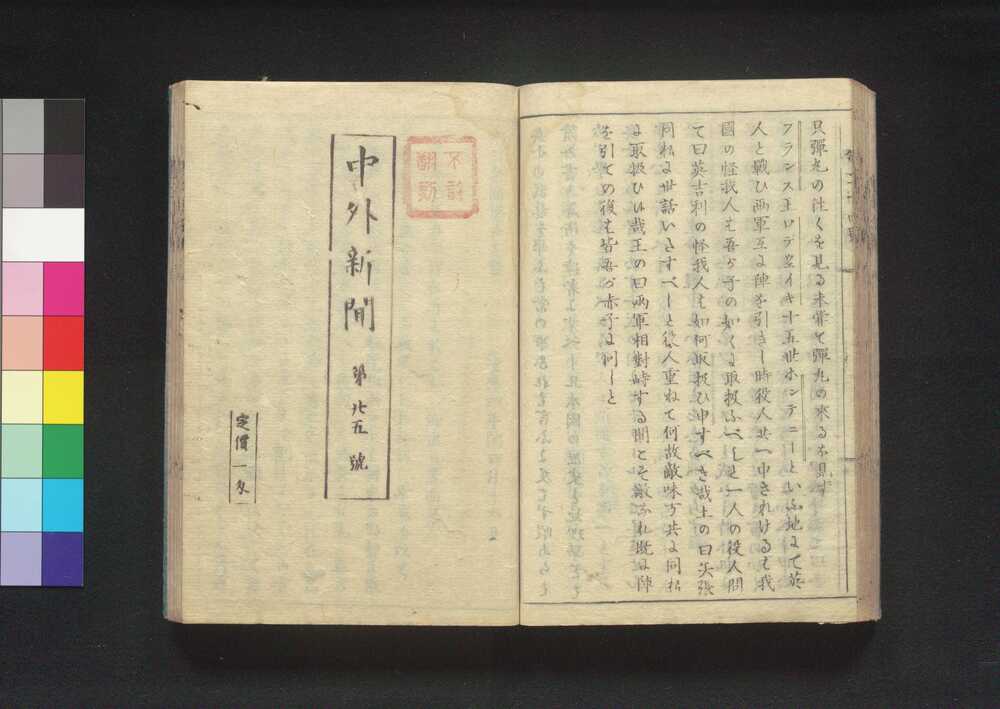 只彈丸の往くを見る未甞て彈丸の來るを見ず
フランス王ロデウイキ十五世ホンテニーといふ地にて英
人と戰ひ兩軍互に陣を引きし時役人共一申されけるは我
國の怪我人は吾が子の如くに取扱ふべし是一人の役人問
て曰英吉利の怪我人は如何取扱ひ申すべき哉王の曰矢張
同私に世話いたすべしと役人重ねて何故敵味方共に同私
に取扱ひ候哉王の曰兩軍相對峙する間こそ敵なれ既に陣
を引ての後は皆吾が赤子に同しと
不許
翻刻
中外新聞
第廿五號
定價一匁